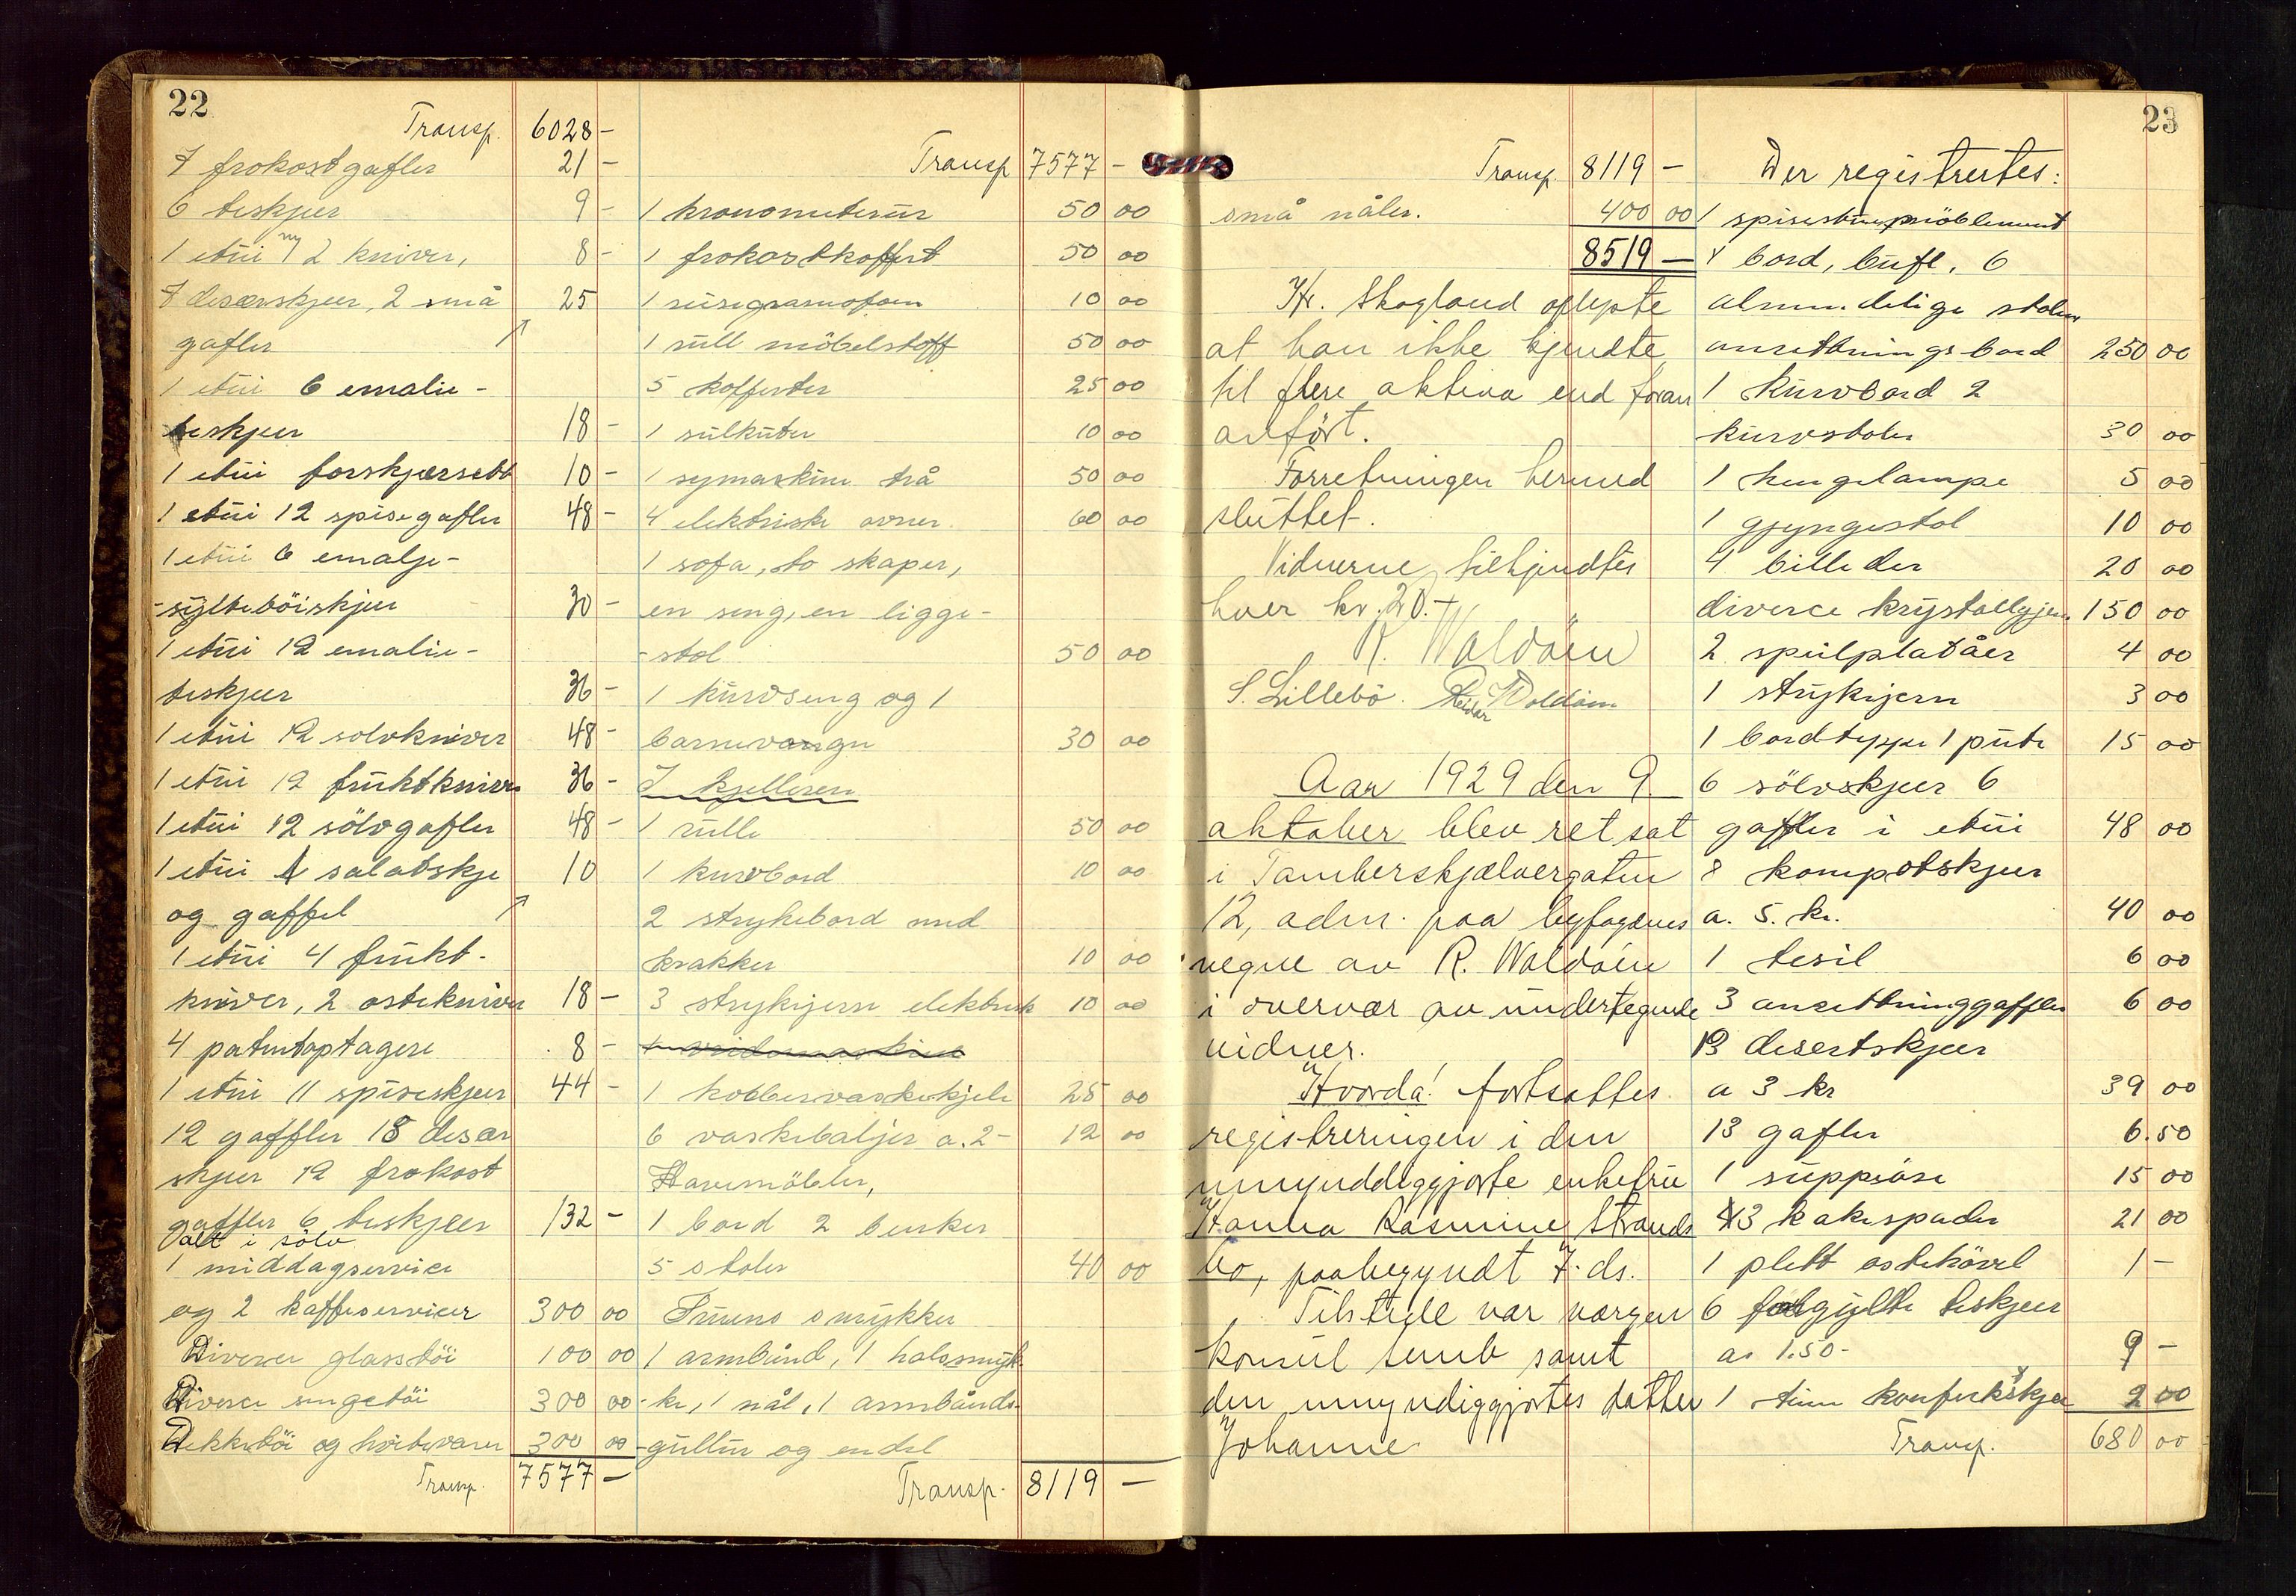 22
Transp. 6028 –
7 frokostgafler 21 –
6 teskjeer 9 –
1 etüi m 2 kniver, 8 –
7 desærskjeer, 2 små 25
gafler
1 etüi 6 emalie-
teskjeer 18 –
1 etüi forskjærsett 10 –
1 etüi 12 spisegafler 48 –
1 etüi 6 emalje-
-syltetöiskjeer 30 –
1 etüi 12 emalie-
teskjeer 36 –
1 etüi 12 solvkniver 48 –
1 etüi 12 früktkniver 36 –
1 etüi 12 sölvgafler 48 –
1 etüi 1 salatskje 10
og gaffel
1 etüi 4 frükt-
kniver, 2 ostekniver 18 –
4 patentoptagere 8 –
1 etüi 11 spiseskjeer 44 –
12 gaffler 18 desær
skjeer 12 frokost
gaffler 6 teskjeer 132 –
alt i sölv
1 middagservice
og 2 kaffeservicer 300 00
Diverse glasstöi 100 00
Diverse sengetöi 300 00
Dekketöi og hvitevarer 300 00
Transp. 7577 –
Transp 7577 –
1 kronometerür 50 00
1 frokostkoffert 50 00
1 reisegramofom 10 00
1 rüll möbelstoff 50 00
5 kofferter 25 00
1 sülküter 10 00
1 symaskine trå 50 00
4 elektriske ovner 60 00
1 sofa, to skaper,
en seng, en ligge-
-stol 50 00
1 kürvseng og 1
barnevongn 30 00
I kjelleren
1 rülle 50 00
1 kurvbord 10 00
2 strykebord med
krakker 10 00
3 strykejern elektrisk 10 00
1 vridemaskine
1 kobbervaskekjele 25 00
6 vaskebaljer a. 2– 12 00
Havemöbler,
1 bord 2 benker
5 stoler 40 00
Fruens smykker
1 armbånd, 1 halssmyk-
-ke, 1 nål, 1 armbånds-
-güllür og endel
Transp. 8119 –
23
Transp. 8119 –
små nåler. 400 00
8519 –
Hr. Skogland oplyste
at han ikke kjendte
til flere aktiva end foran
anfört.
Forretningen hermed
slüttet.
Vidnerne tilkjendtes
hver kr. 20.–
R. Waldöen
S. Lillebö. Reidar Woldöen
Aar 1929 den 9.
oktober blev ret sat
i Tamberskjelvergaten
12, adm. paa byfogdens
vegne av R. Waldöen
i overvær av ündertegnede
vidner.
Hvorda: fortsattes
registreringen i den
umynddiggjorte enkefrü
Hanna Rasmine Strands
bo, paabegyndt 7. ds.
Tilstede var vergen
konsül Semb samt
den umyndiggjortes datter
Johanne
Der registrertes:
1 spisestuemöblement
1 bord, büfe, 6
almindelige stoler
anrettningsbord 250 00
1 kürvbord 2
kürvstoler 30 00
1 hengelampe 5 00
1 gyngestol 10 00
4 billeder 20 00
diverse krystallgjen. 150 00
2 speilplatåer 4 00
1 strykejern 3 00
1 bordteppe 1 püte 15 00
6 sölvskjeer 6
gaffler i etüi 48 00
8 kompotskjeer
a. 5. kr. 40 00
1 tesil 6 00
3 anrettninggaffler 6 00
13 desertskjeer
a 3 kr 39 00
13 gafler 6.50
1 süppöse 15 00
3 kakespader 21 00
1 plett ostehövel 1 –
6 forgyllte teskjeer
a. 1.50– 9 –
1 tinn konfektskje 2 00
Transp. 680 00